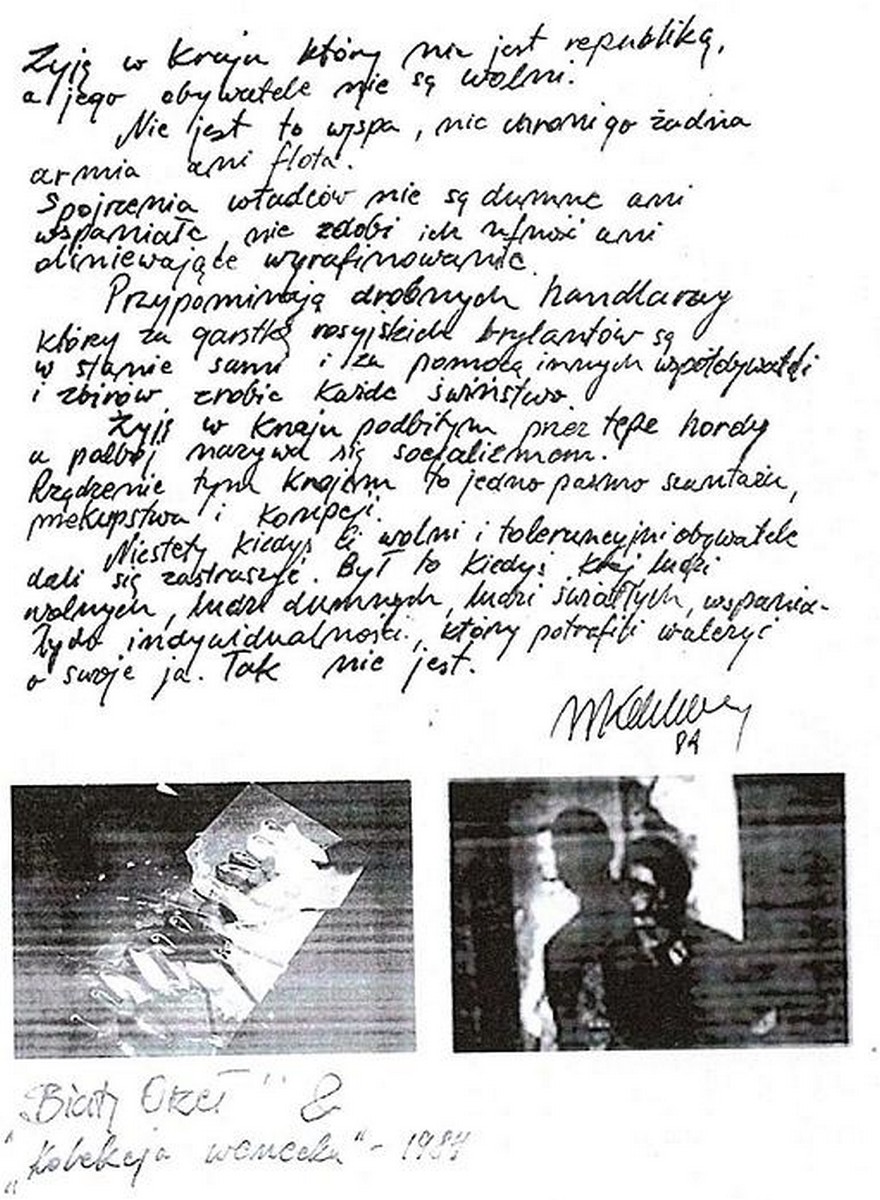 Żyję w kraju który nie jest republiką,
a jego obywatele nie są wolni.
Nie jest to wyspa, nie chroni go żadna
armia ani flota.
Spojrzenia władców nie są dumne ani
wspaniałe, nie zdobi ich ufność ani
olśniewające wyrafinowanie.
Przypominają drobnych handlarzy
który za garstkę rosyjskich brylantów są
w stanie sami i za pomocą innych współobywateli
i zbirów zrobić każde świństwo.
Żyję w kraju podbitym przez tępe hordy
a podbój nazywa się socjalizmem.
Rządzenie tym krajem to jedno pasmo szantażu,
przekupstwa i korupcji.
Niestety kiedyś ci wolni i tolerancyjni obywatele
dali się zastraszyć. Był to kiedyś kraj ludzi
wolnych, ludzi dumnych, ludzi światłych, wspania-
łych indywidualności, który potrafili walczyć
o swoje ja. Tak nie jest.
84
"Biały Orzeł" &
"Kolekcja" - 1984